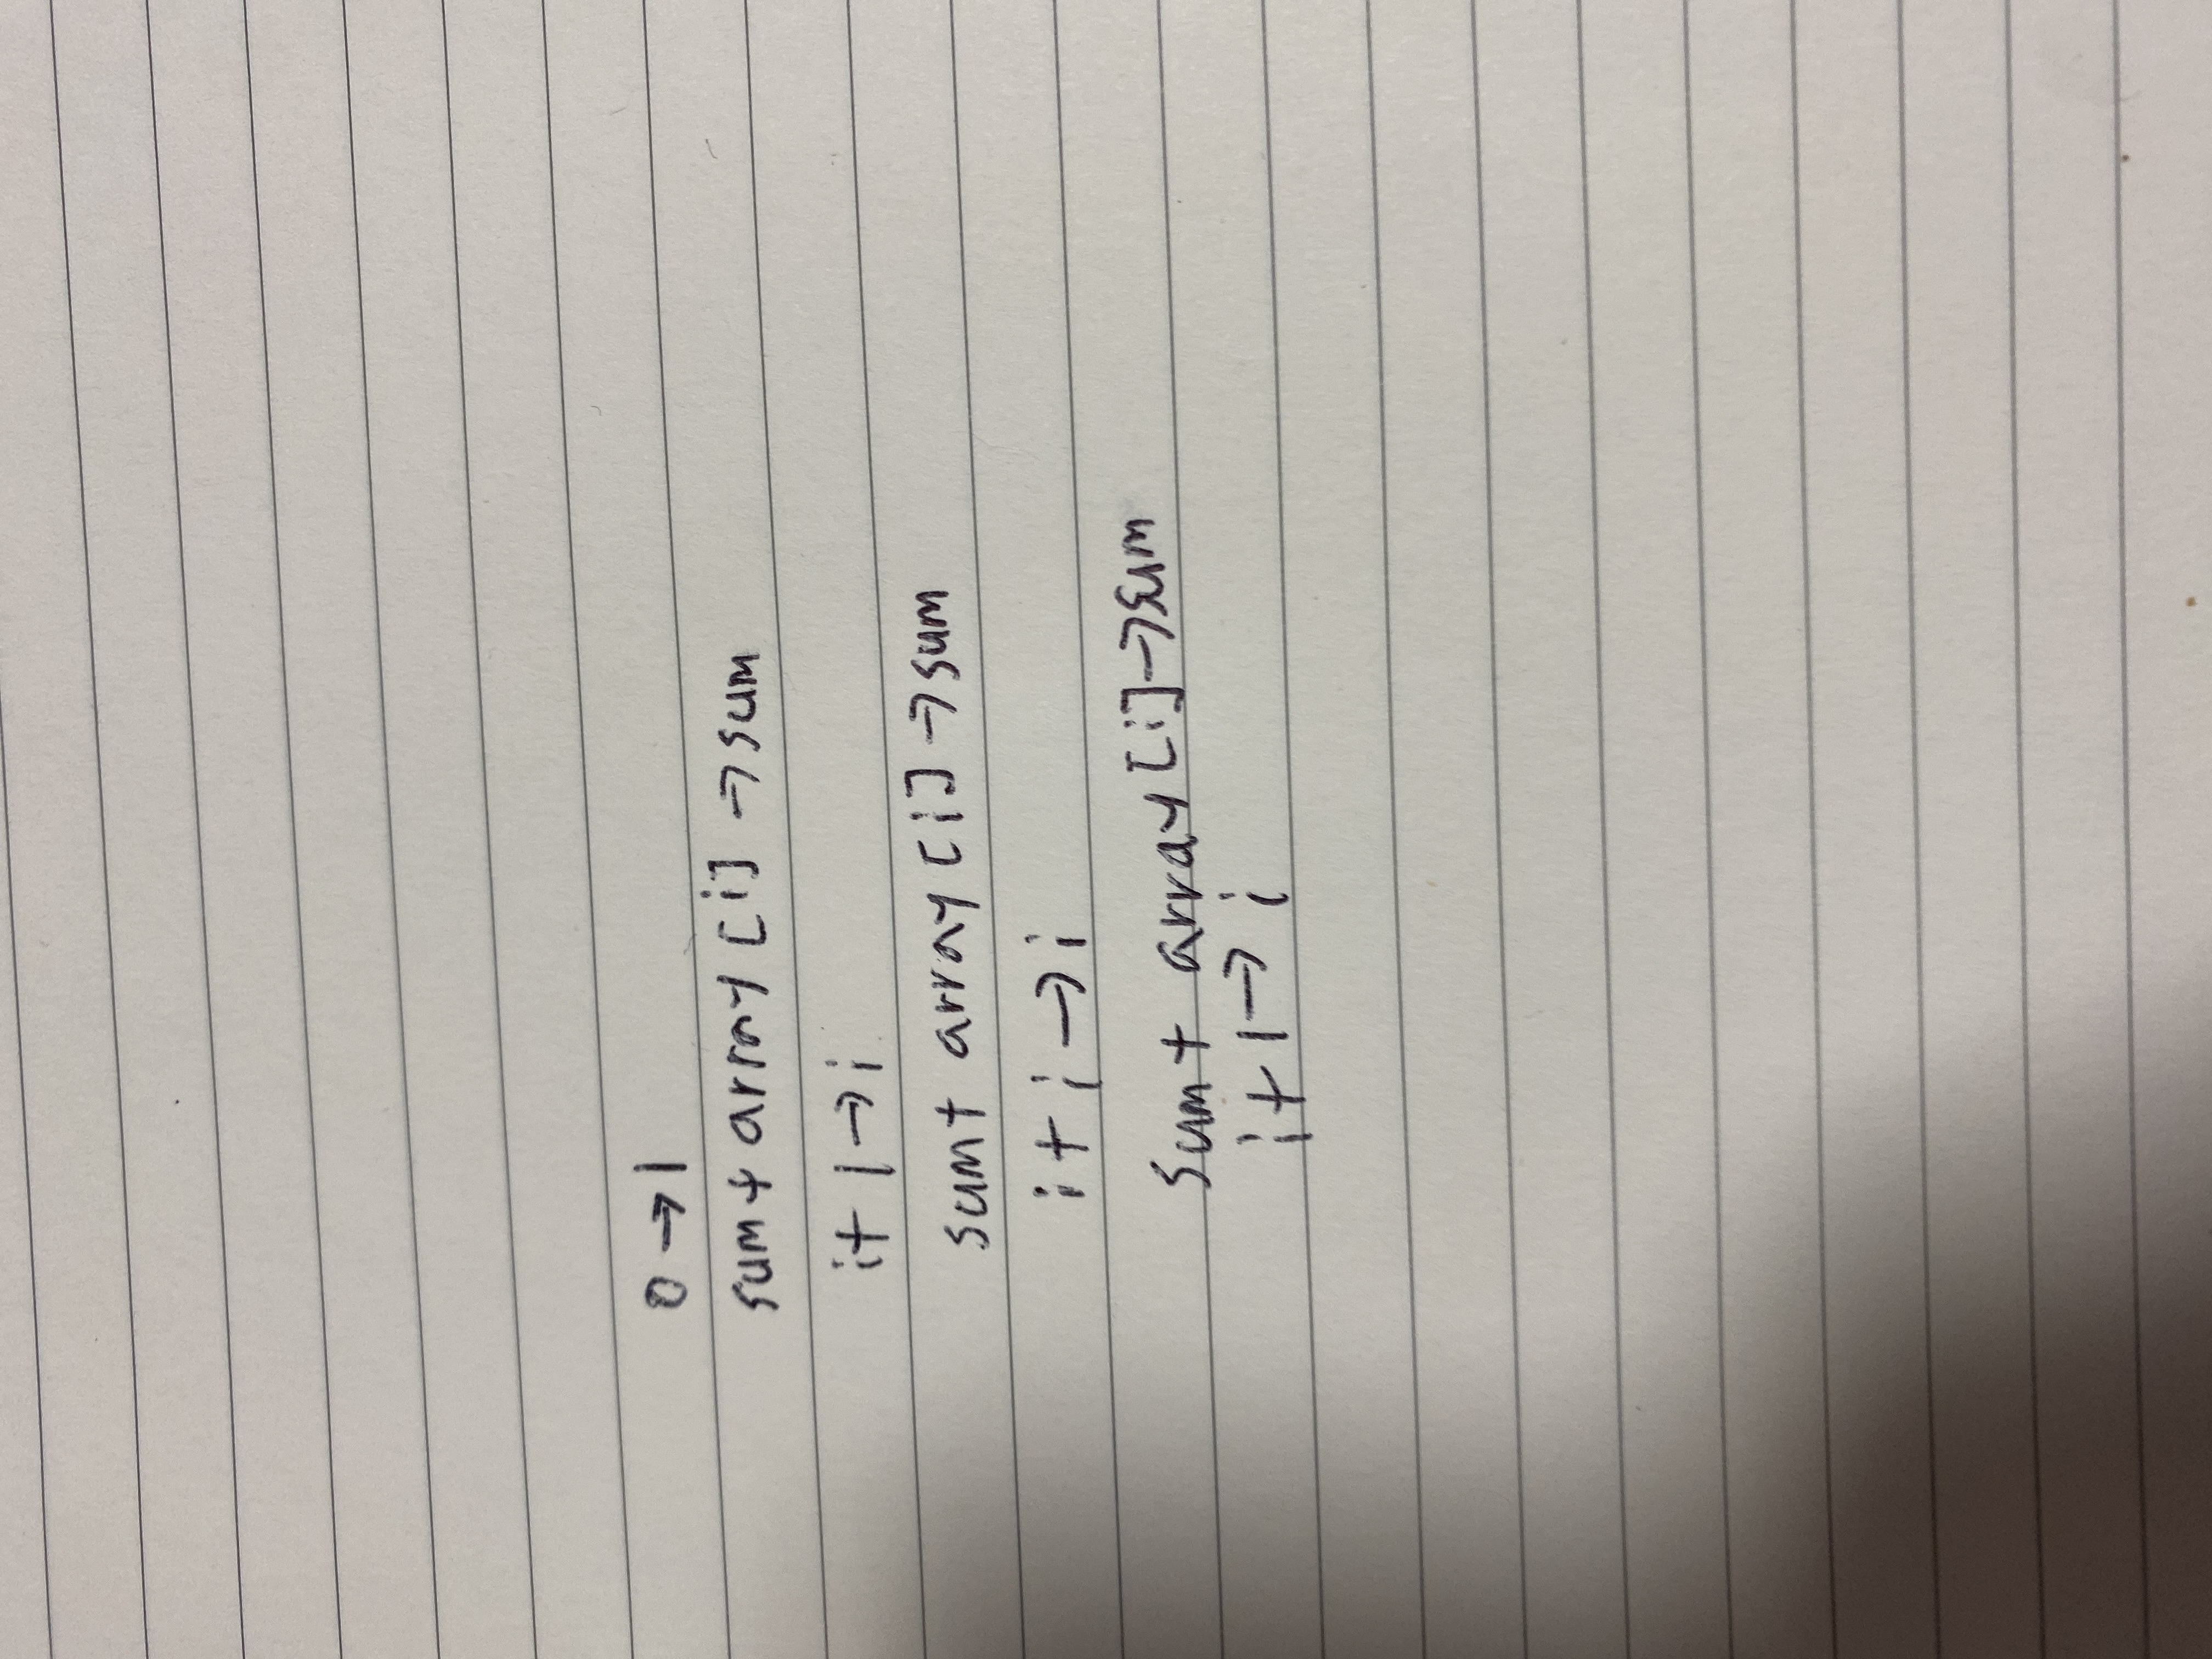 0 → 1
sum + array [i] → sum
i + 1 → i
sum + array [i] → sum
i + i → i
sum + array [i] → sum
i + 1 → i